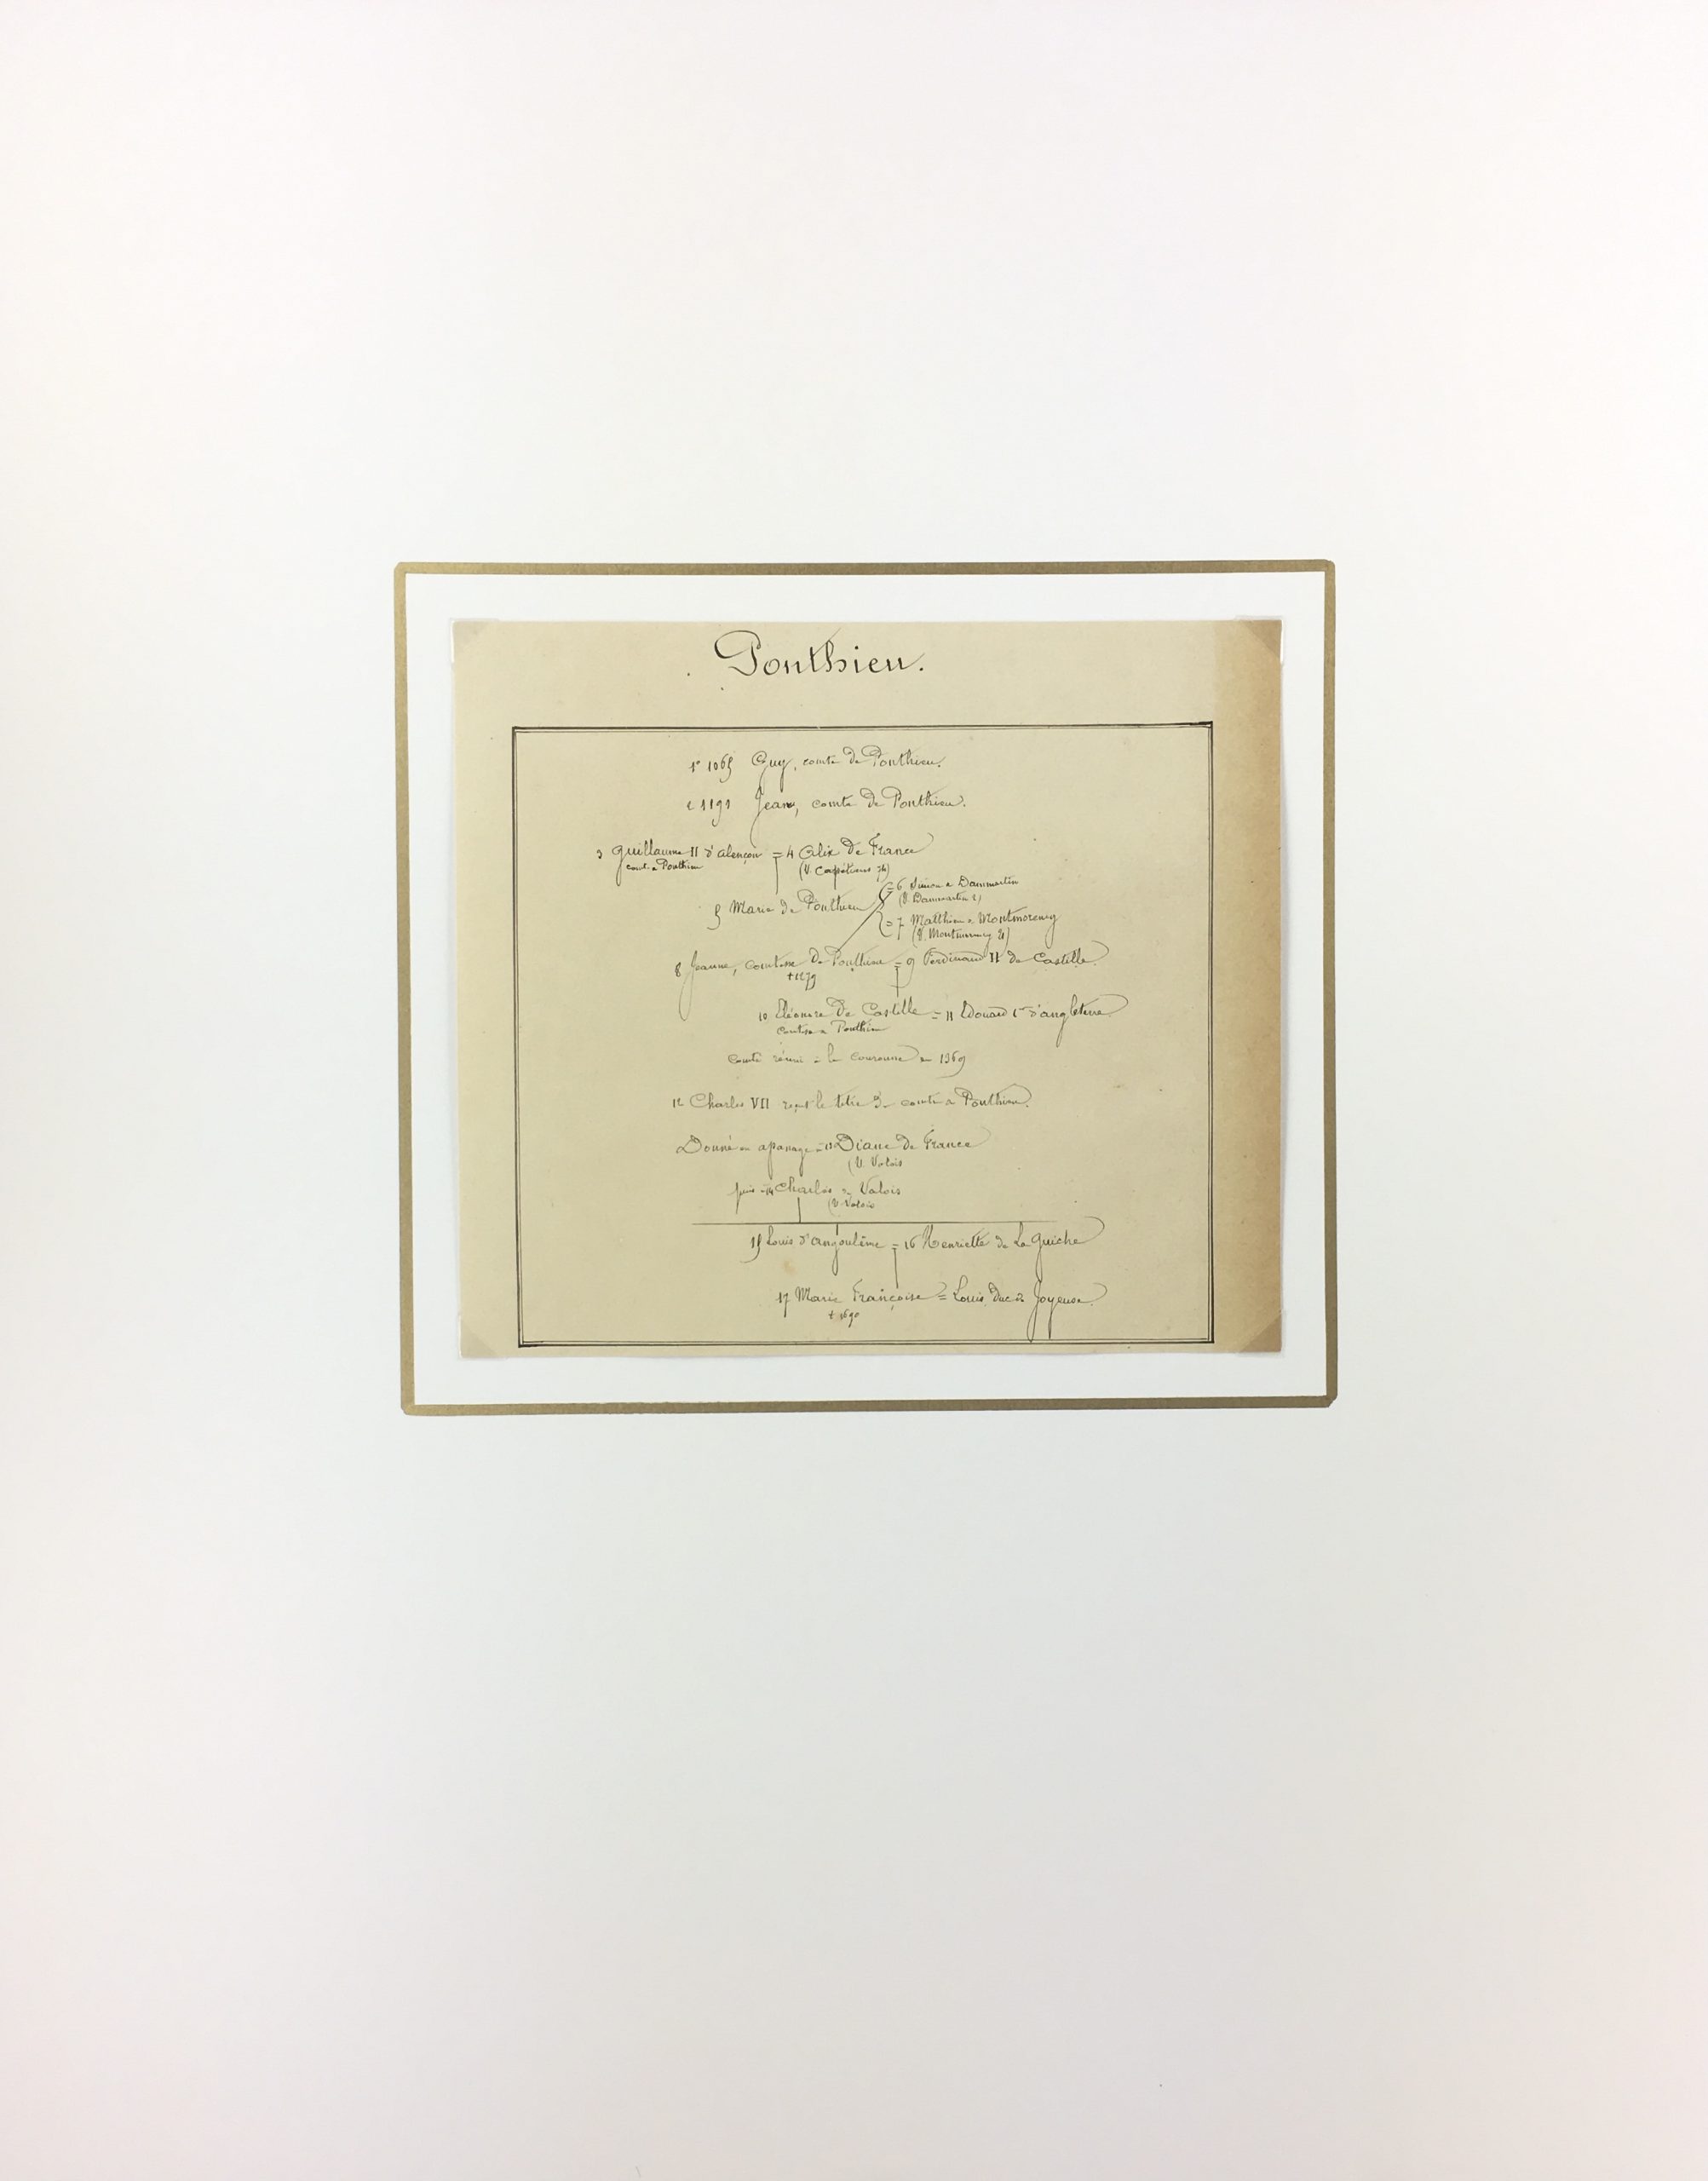 Ponthieu.
1° 1065 Guy, comte de Ponthieu.
2 1191 Jean, comte de Ponthieu.
3 Guillaume II d'Alençon = 4 Alix de France
comte de Ponthieu (V. Capétiens 74)
5 Marie de Ponthieu = 6 Simon de Dammartin
(V. Dammartin 2)
= 7 Matthieu de Montmorency
(V. Montmorency 21)
8 Jeanne, comtesse de Ponthieu = 9 Ferdinand II de Castille
+ 1279
10 Eléonore de Castille = 11 Edouard 1er d'angleterre
comtesse de Ponthieu
Comté réuni à la couronne en 1369
12 Charles VII reçut le titre de comte de Ponthieu.
Donné en apanage à 13 Diane de France
(V. Valois
puis à 14 Charles de Valois
(V. Valois
15 Louis d'angoulême = 16 Henriette de La Guiche
17 Marie Françoise = Louis, duc de Joyeuse
+ 1690